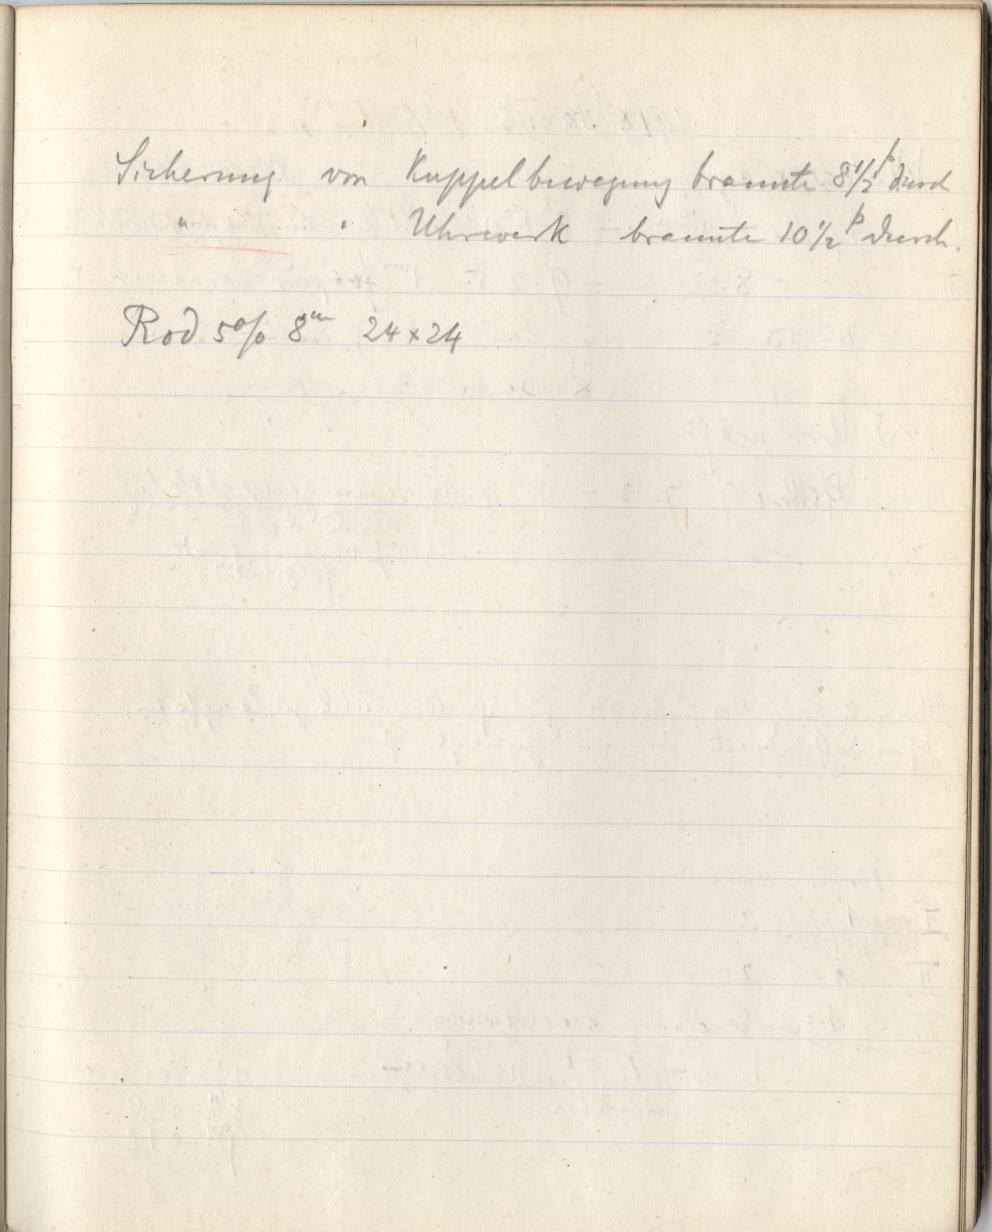 Sicherung von Kuppelbewegung brannte 8½ᵖ durch
" " Uhrwerk brannte 10½ᵖ durch.
Rod 5% 8ᵐ 24 x 24